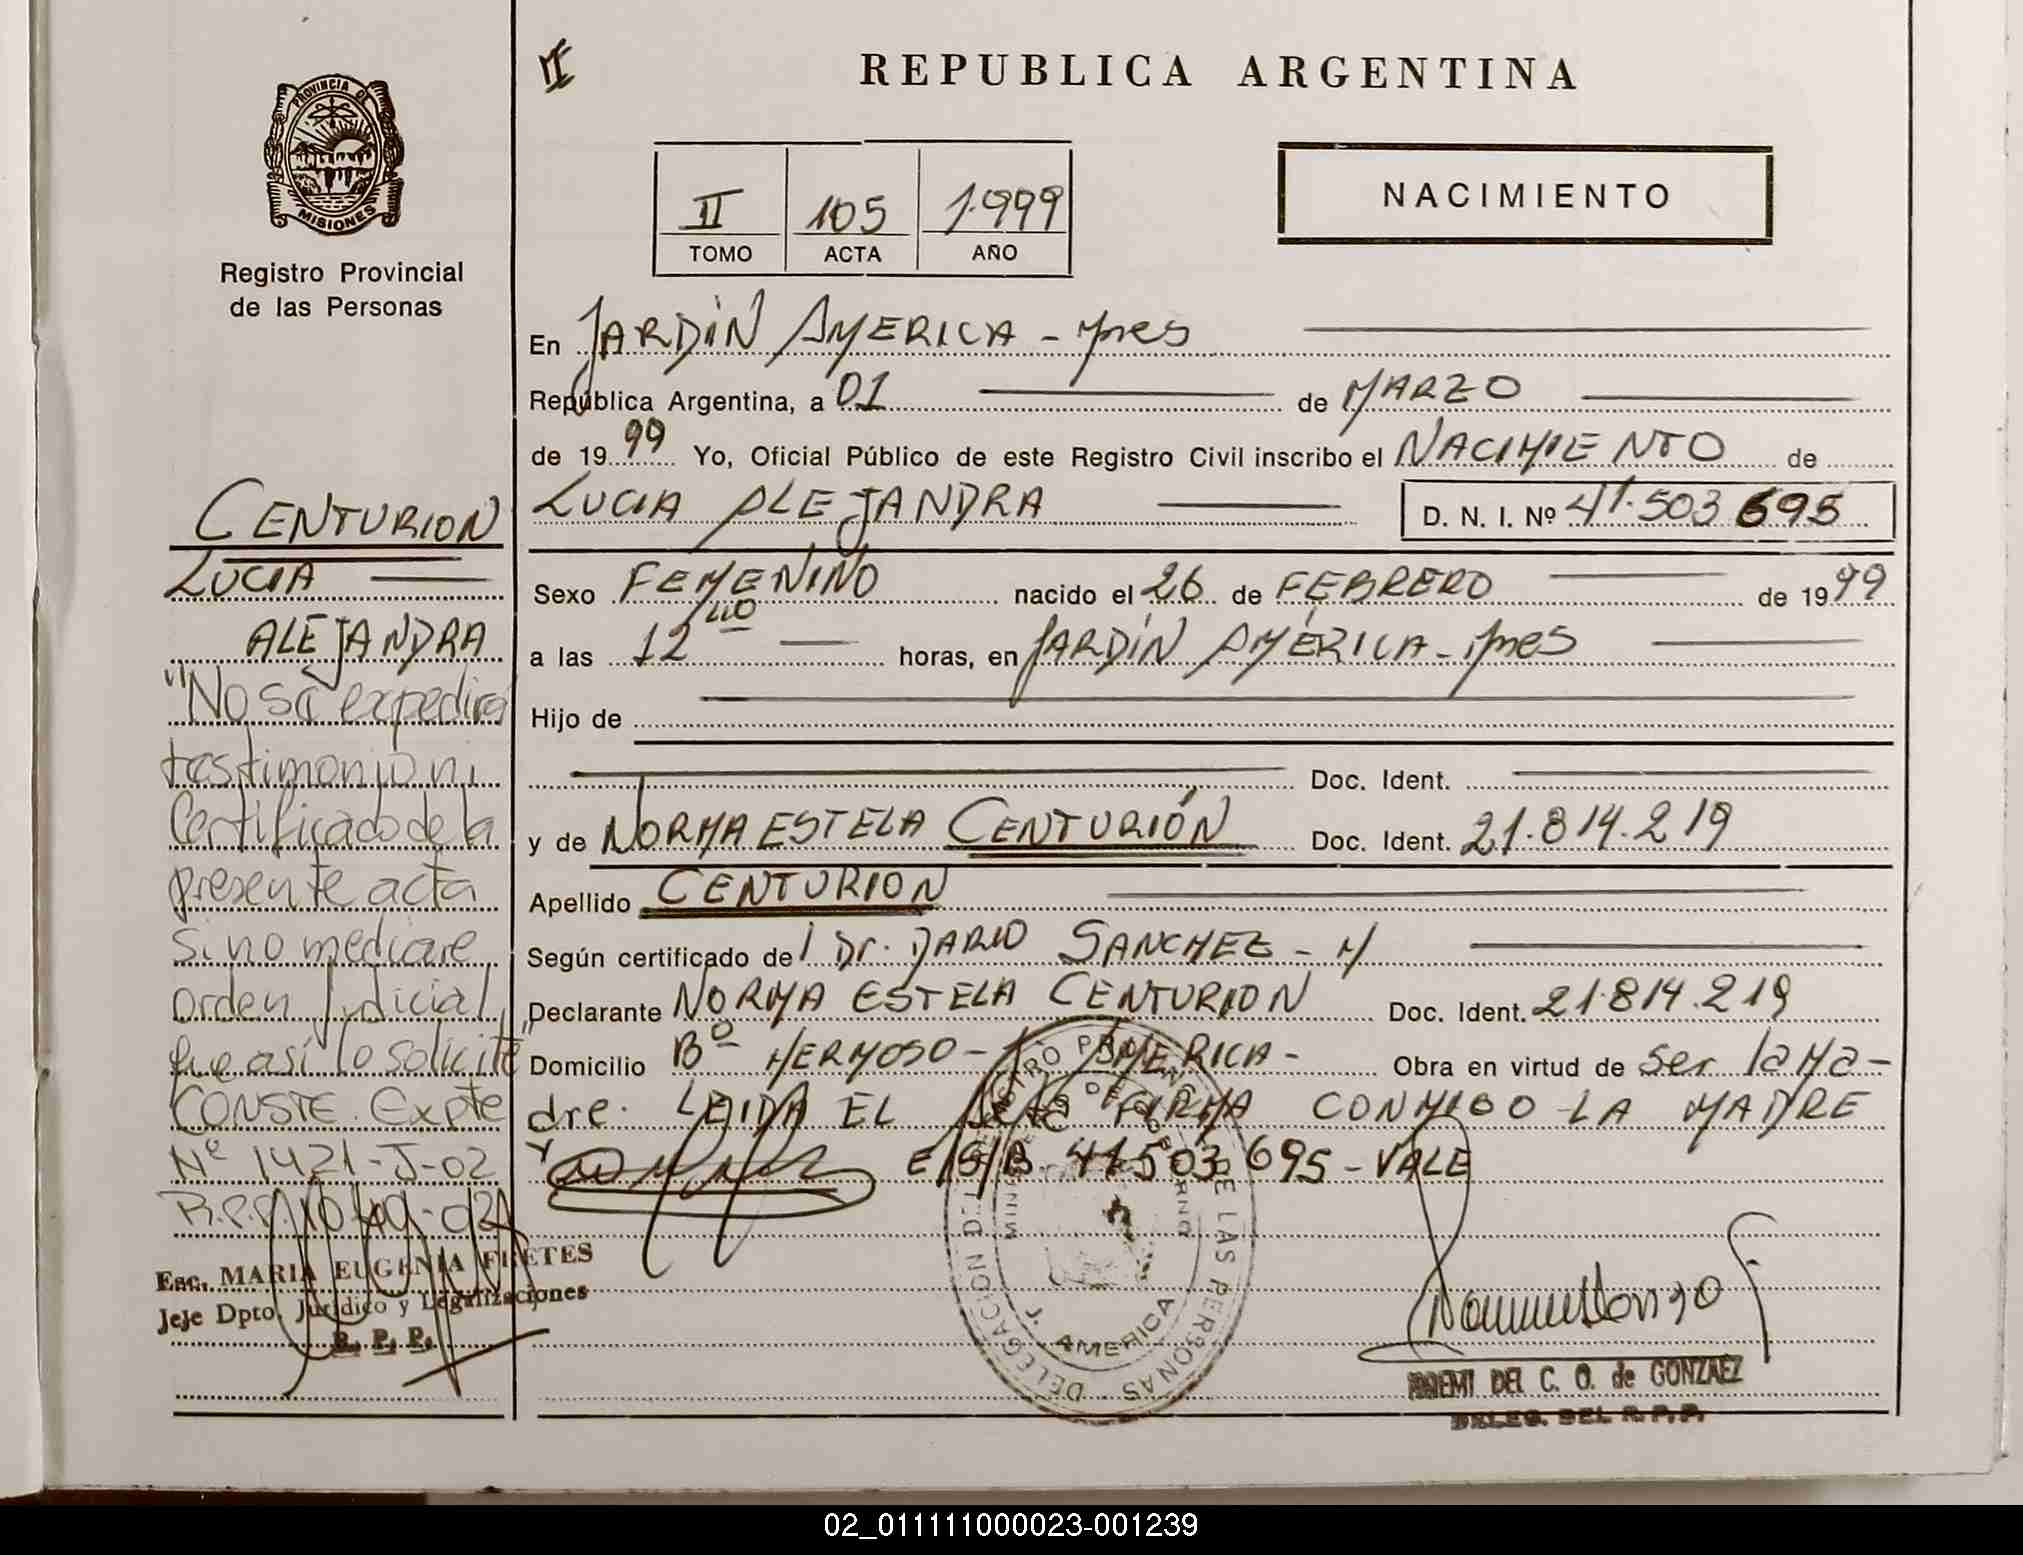 PROVINCIA DE
MISIONES
Registro Provincial
de las Personas
CENTURION
LUCIA
ALEJANDRA
"No se expedira
testimonio ni
Certificado de la
presente acta
si no mediare
orden Judicial
que así lo solicite"
CONSTE. Expte
Nº 1421-J-02
R.P.P.
Esc. MARIA EUGENIA FRETES
Jeje Dpto. Jurídico y Legalizaciones
R. P. P.
II
REPUBLICA ARGENTINA
II 105 1.999
TOMO ACTA AÑO
NACIMIENTO
En JARDIN AMERICA - Mnes
República Argentina, a 01 de MARZO
de 1999 Yo, Oficial Público de este Registro Civil inscribo el NACIMIENTO de
LUCIA ALEJANDRA D. N. I. Nº 41.503 695
Sexo FEMENINO nacido el 26 de FEBRERO de 1999
a las 12 horas, en JARDIN AMÉRICA - Mnes
Hijo de
Doc. Ident.
y de NORMA ESTELA CENTURIÓN Doc. Ident. 21.814.219
Apellido CENTURION
Según certificado del Dr. DARIO SANCHEZ - M
Declarante NORMA ESTELA CENTURION Doc. Ident. 21.814.219
Domicilio Bº HERMOSO - J. AMERICA - Obra en virtud de ser la Ma-
dre. LEIDA EL ACTA FIRMA CONMIGO LA MADRE
E/S/B. 41503 695 - VALE
DELEGACION DEL REGISTRO PROVINCIAL DE LAS PERSONAS
J. AMERICA
DEL C. O. de GONZAEZ
DELEG. DEL R.P.P.
02_011111000023-001239